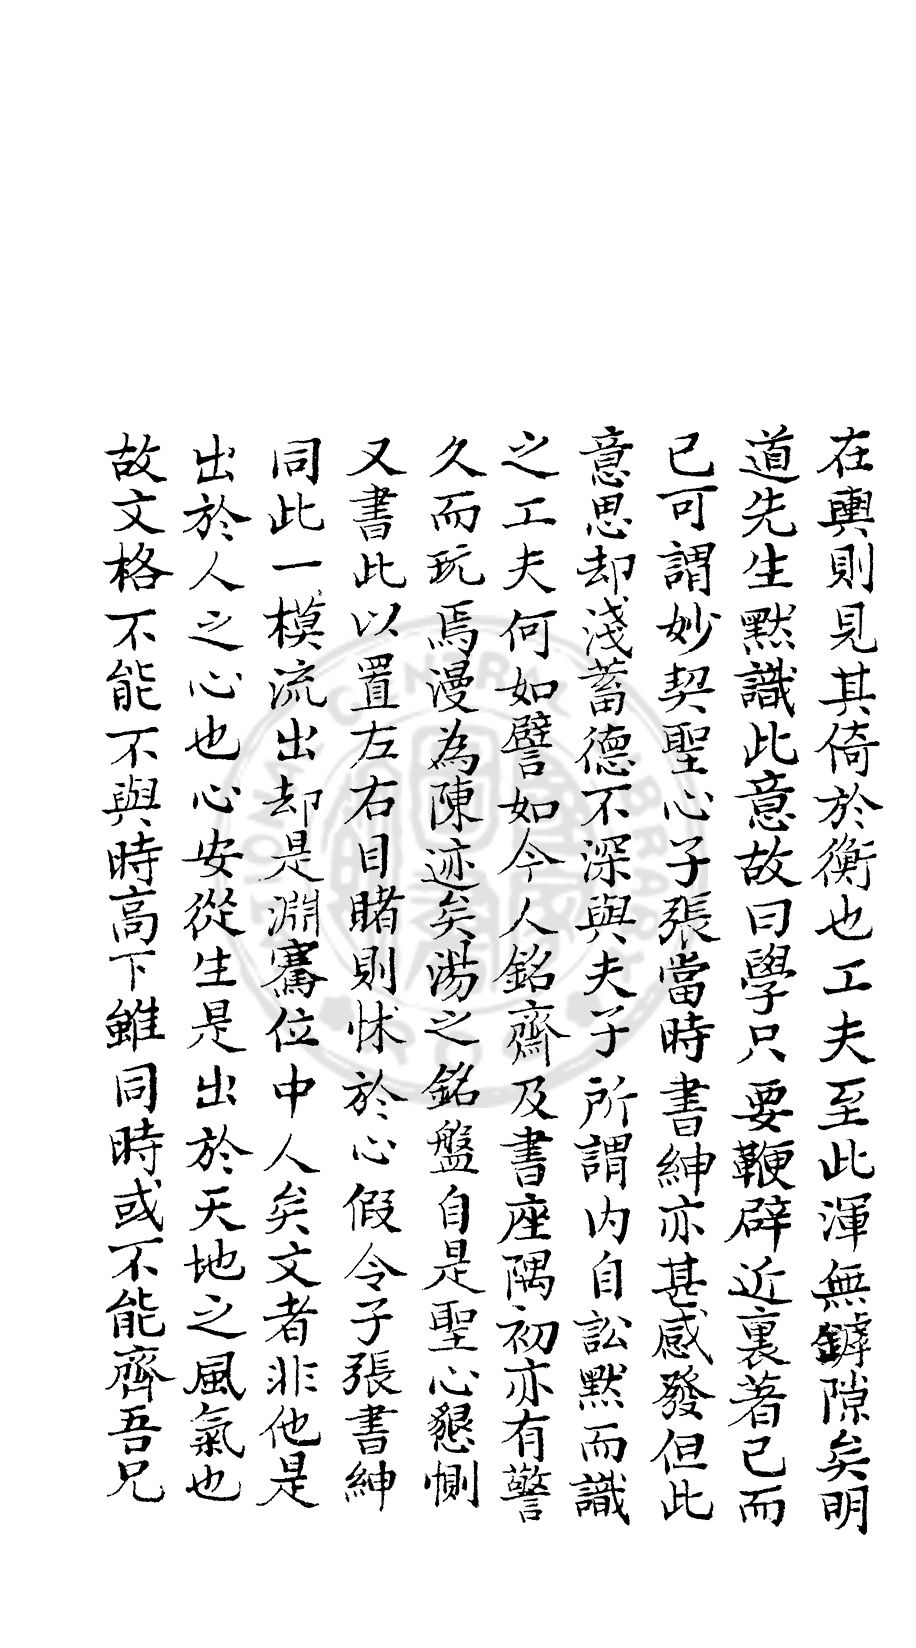 在輿則見其倚於衡也工夫至此渾無鏬隙矣明
道先生默識此意故曰學只要鞭辟近裏著己而
已可謂妙契聖心子張當時書紳亦甚感發但此
意思却淺蓄德不深與夫子所謂内自訟默而識
之工夫何如譬如今人銘齋及書座隅初亦有警
久而玩焉漫為陳迹矣湯之銘盤自是聖心懇惻
又書此以置左右目睹則怵於心假令子張書紳
同此一模流出却是淵騫位中人矣文者非他是
出於人之心也心安從生是出於天地之風氣也
故文格不能不與時高下雖同時或不能齊吾兄